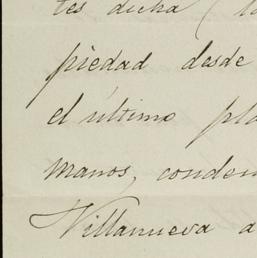 tes dicha (
piedad desde
el último
manos,
Villanueva a